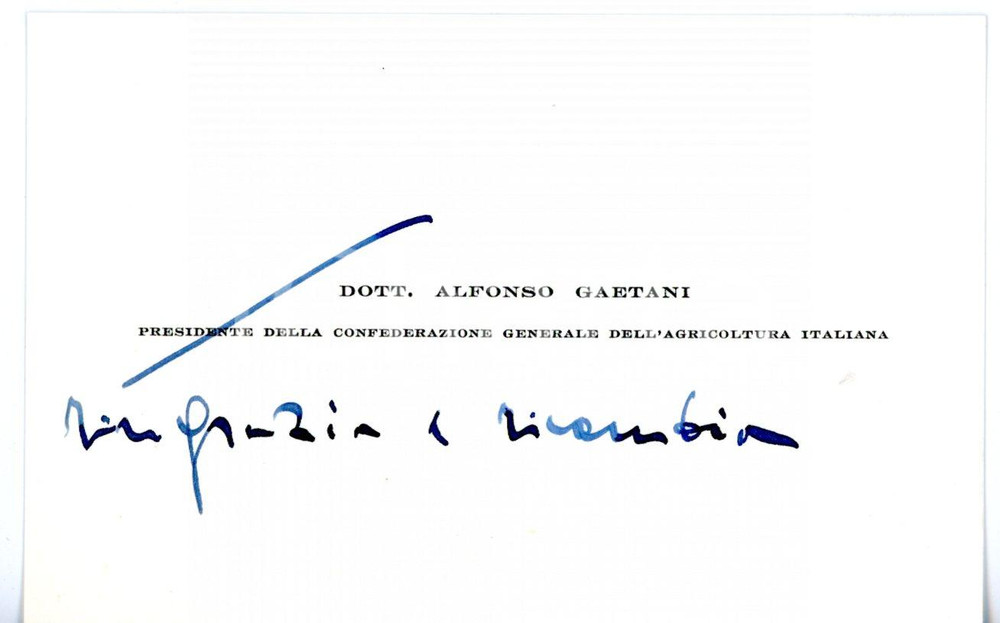 DOTT. ALFONSO GAETANI
PRESIDENTE DELLA CONFEDERAZIONE GENERALE DELL'AGRICOLTURA ITALIANA
ringrazia e ricambia